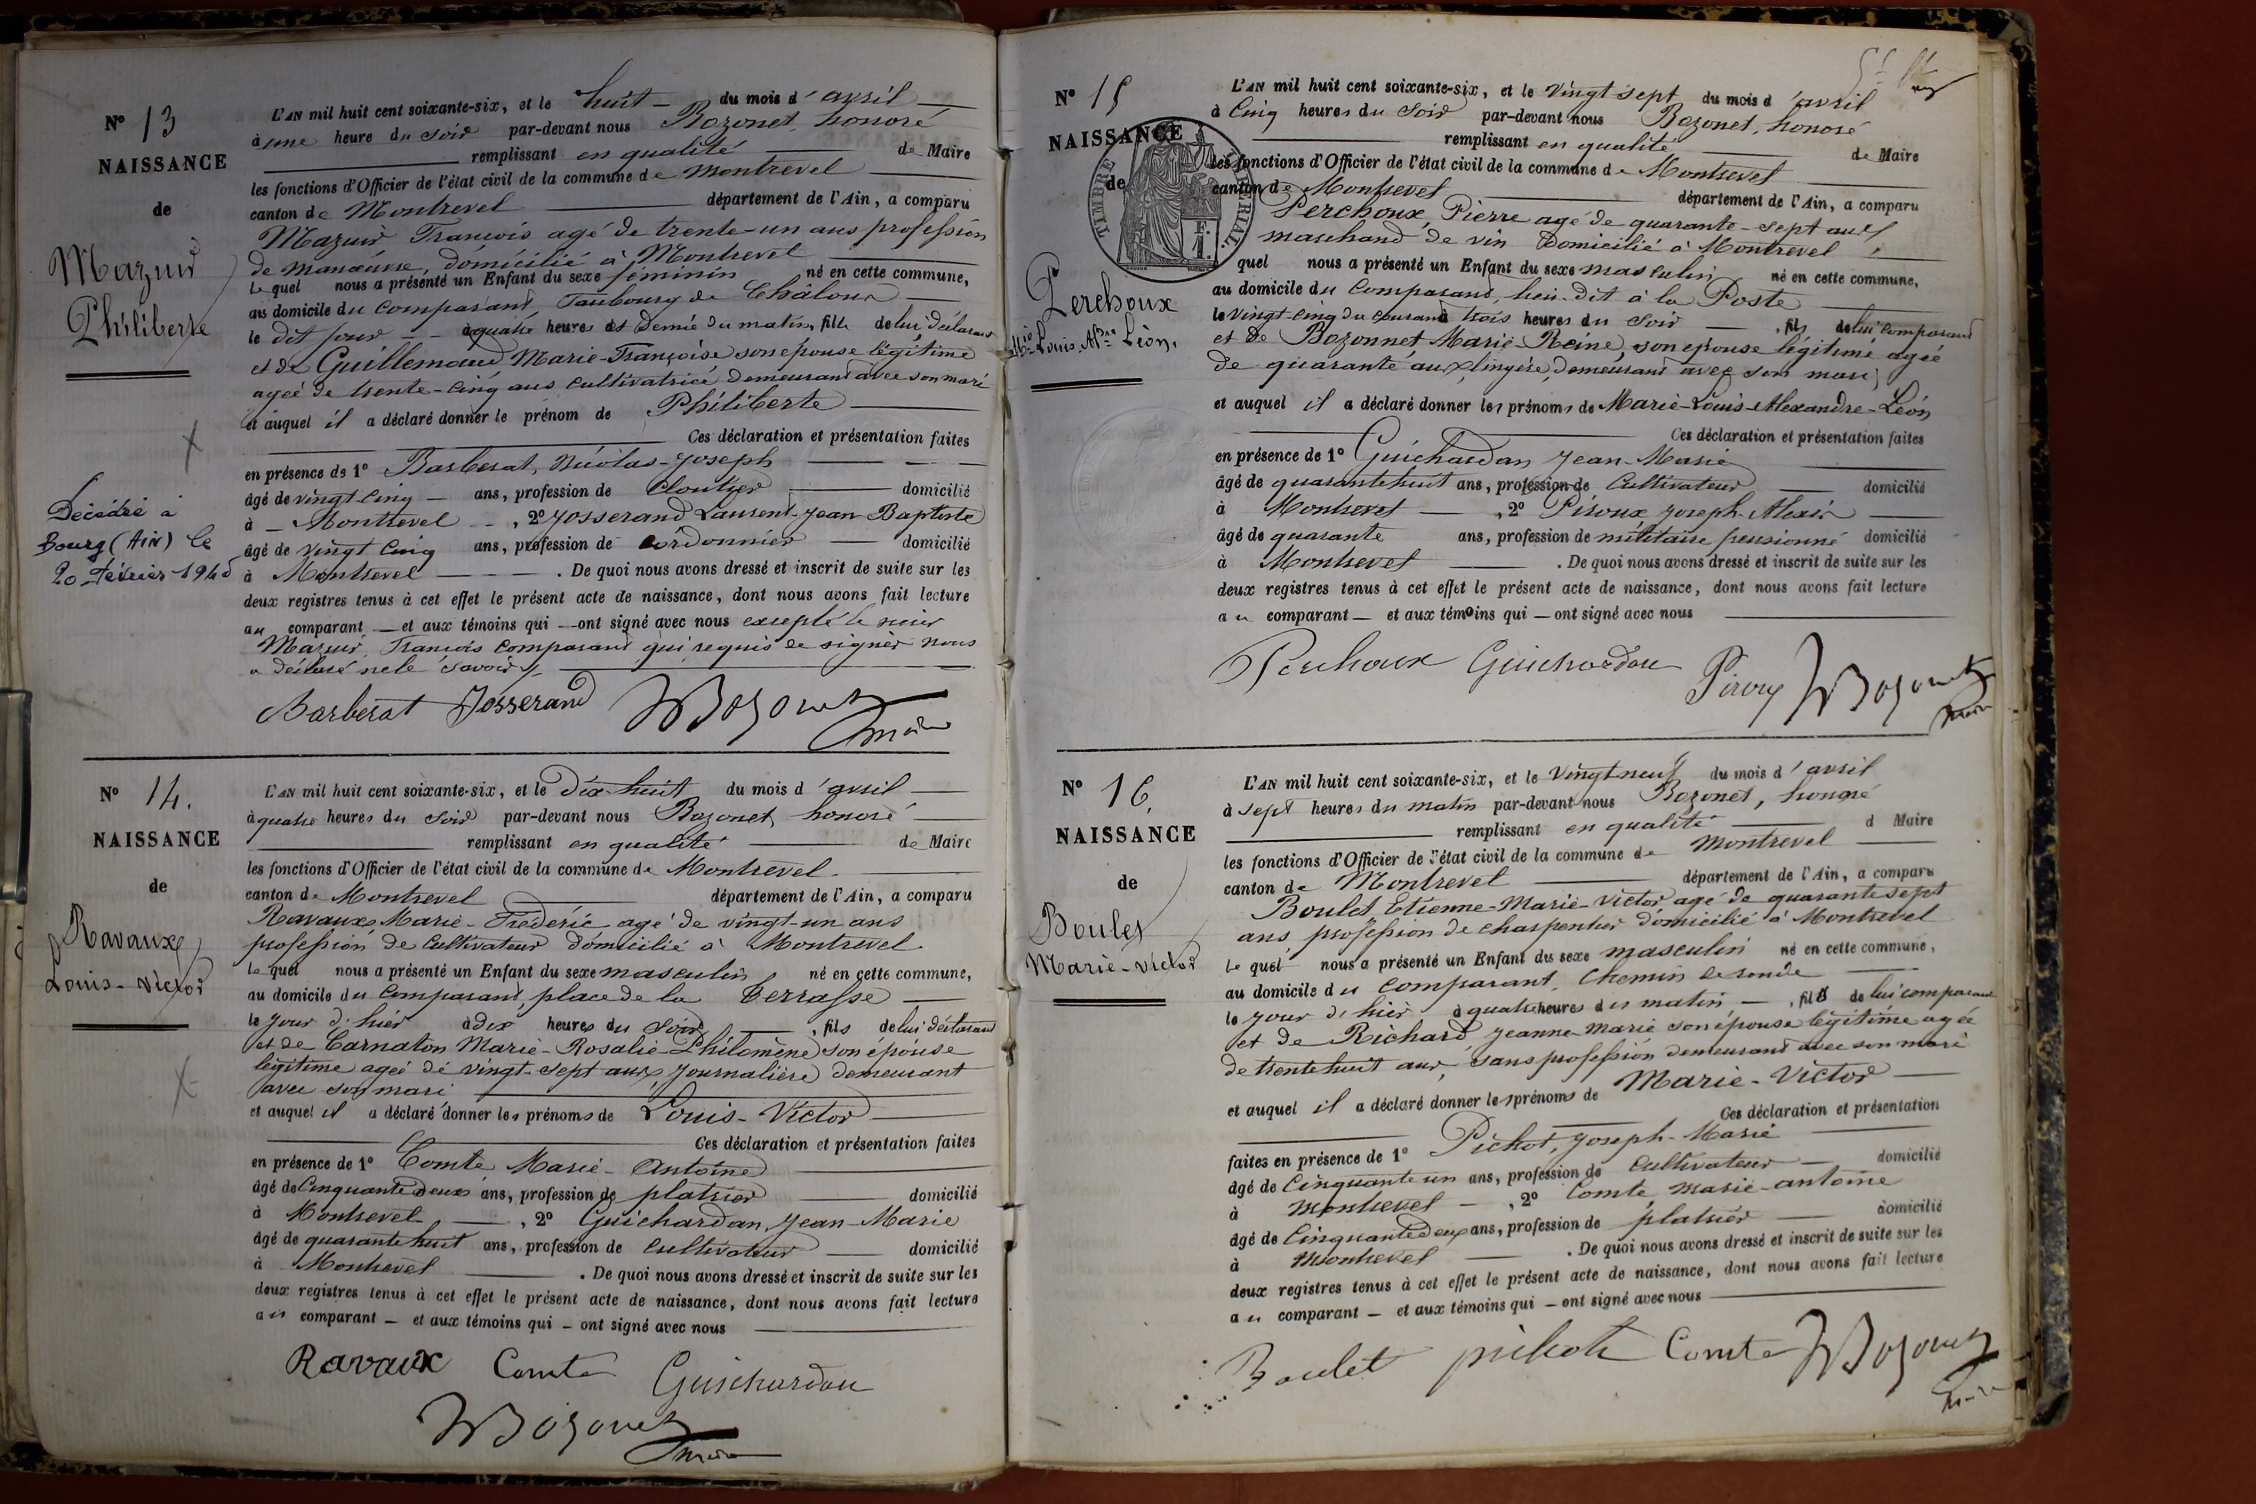 N° 13
NAISSANCE
de
Mazuir
Philiberte
Décédée à
Bourg (Ain) le
20 Février 194
L'AN mil huit cent soixante-six, et le huit du mois d'avril
à une heure du soir par-devant nous Bozonet, honoré
remplissant en qualité de Maire
les fonctions d'Officier de l'état civil de la commune de Montrevel
canton de Montrevel département de l'Ain, a comparu
Mazuir François agé de trente-un ans profession
de manœuvre, domicilié à Montrevel
Le quel nous a présenté un Enfant du sexe féminin né en cette commune,
au domicile du comparant, Faubourg de Châlons
le dit jour à quatre heures et demie du matin, fille de lui déclarant
et de Guillemaud Marie-Françoise son épouse légitime
agée de trente-cinq ans cultivatrice demeurant avec son mari
et auquel il a déclaré donner le prénom de Philiberte
Ces déclaration et présentation faites
en présence de 1° Barberat, Nicolas-Joseph
âgé de vingt cinq ans, profession de cloutier domicilié
à Montrevel, 2° Josserand Laurent-Jean Baptiste
âgé de vingt cinq ans, profession de cordonnier domicilié
à Montrevel. De quoi nous avons dressé et inscrit de suite sur les
deux registres tenus à cet effet le présent acte de naissance, dont nous avons fait lecture
au comparant et aux témoins qui ont signé avec nous excepté le sieur
Mazuir François comparant qui requis de signer nous
a déclaré ne le savoir
Barberat Josserand Bozonet
maire
N° 14.
NAISSANCE
de
Ravaux
Louis-Victor
L'AN mil huit cent soixante-six, et le Dix-huit du mois d'avril
à quatre heures du soir par-devant nous Bozonet, honoré
remplissant en qualité de Maire
les fonctions d'Officier de l'état civil de la commune de Montrevel
canton de Montrevel département de l'Ain, a comparu
Ravaux Marie-Fréderic agé de vingt-un ans
profession de cultivateur domicilié à Montrevel
Le quel nous a présenté un Enfant du sexe masculin né en cette commune,
au domicile du comparant place de la Terrasse
le jour d'hier à dix heures du soir, fils de lui déclarant
et de Carnaton Marie-Rosalie-Philomène son épouse
légitime agée de vingt-sept ans journalière demeurant
avec son mari
et auquel il a déclaré donner les prénoms de Louis-Victor
Ces déclaration et présentation faites
en présence de 1° Comte Marie-Antoine
âgé de Cinquante deux ans, profession de platrier domicilié
à Montrevel, 2° Guichardan, Jean-Marie
âgé de quarante huit ans, profession de cultivateur domicilié
à Montrevel. De quoi nous avons dressé et inscrit de suite sur les
deux registres tenus à cet effet le présent acte de naissance, dont nous avons fait lecture
au comparant et aux témoins qui ont signé avec nous
Ravaux Comte Guichardan
Bozonet
maire
N° 15
NAISSANCE
de
TIMBRE IMPÉRIAL
Perchoux
Mie-Louis-Alxre Léon.
L'AN mil huit cent soixante-six, et le vingt sept du mois d'avril
à Cinq heures du soir par-devant nous Bozonet, honoré
remplissant en qualité de Maire
les fonctions d'Officier de l'état civil de la commune de Montrevel
canton de Montrevel département de l'Ain, a comparu
Perchoux, Pierre agé de quarante-sept ans
marchand de vin domicilié à Montrevel
quel nous a présenté un Enfant du sexe masculin né en cette commune,
au domicile du comparant, lieu-dit à la Poste
le vingt-cinq du courant à trois heures du soir, fils de lui comparant
et de Bozonnet Marie-Reine, son épouse légitime agée
de quarante ans, lingère, demeurant avec son mari
et auquel il a déclaré donner les prénoms de Marie-Louis-Alexandre-Léon
Ces déclaration et présentation faites
en présence de 1° Guichardan Jean-Marie
âgé de quarante huit ans, profession de Cultivateur domicilié
à Montrevel, 2° Piroux Joseph-Alexis
âgé de quarante ans, profession de militaire pensionné domicilié
à Montrevel. De quoi nous avons dressé et inscrit de suite sur les
deux registres tenus à cet effet le présent acte de naissance, dont nous avons fait lecture
au comparant et aux témoins qui ont signé avec nous
Perchoux Guichardan Piroux Bozonet
maire
N° 16.
NAISSANCE
de
Boulet
Marie-Victor
L'AN mil huit cent soixante-six, et le vingt neuf du mois d'avril
à sept heures du matin par-devant nous Bozonet, honoré
remplissant en qualité d Maire
les fonctions d'Officier de l'état civil de la commune de Montrevel
canton de Montrevel département de l'Ain, a comparu
Boulet Etienne-Marie-Victor agé de quarante sept
ans profession de charpentier domicilié à Montrevel
Le quel nous a présenté un Enfant du sexe masculin né en cette commune,
au domicile du comparant, Chemin de ronde
le jour d'hier à quatre heures du matin, fils de lui comparant
et de Richard Jeanne Marie son épouse légitime agée
de trente huit ans, sans profession demeurant avec son mari
et auquel il a déclaré donner les prénoms de Marie-Victor
Ces déclaration et présentation
faites en présence de 1° Pichot, Joseph-Marie
âgé de Cinquante un ans, profession de Cultivateur domicilié
à Montrevel, 2° Comte Marie-antoine
âgé de Cinquante deux ans, profession de platrier domicilié
à Montrevel. De quoi nous avons dressé et inscrit de suite sur les
deux registres tenus à cet effet le présent acte de naissance, dont nous avons fait lecture
au comparant et aux témoins qui ont signé avec nous
Boulet pichot Comte Bozonet
maire